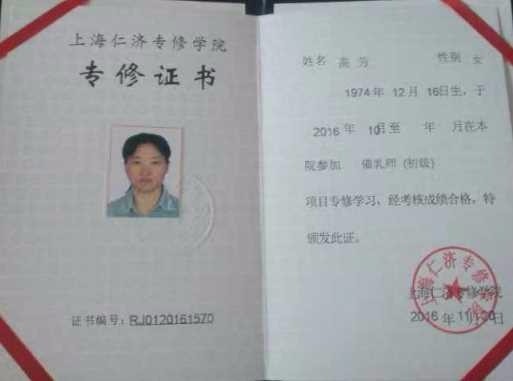 上海仁济专修学院
专修证书
证书编号: RJ0120161570
姓名 高芳 性别 女
1974年 12月 16日生, 于
2016 年 10月至 年 月在本
院参加 催乳师 (初级)
项目专修学习、经考核成绩合格, 特
颁发此证。
上海仁济专修学院
上海仁济专修学院
2016 年 11月20日